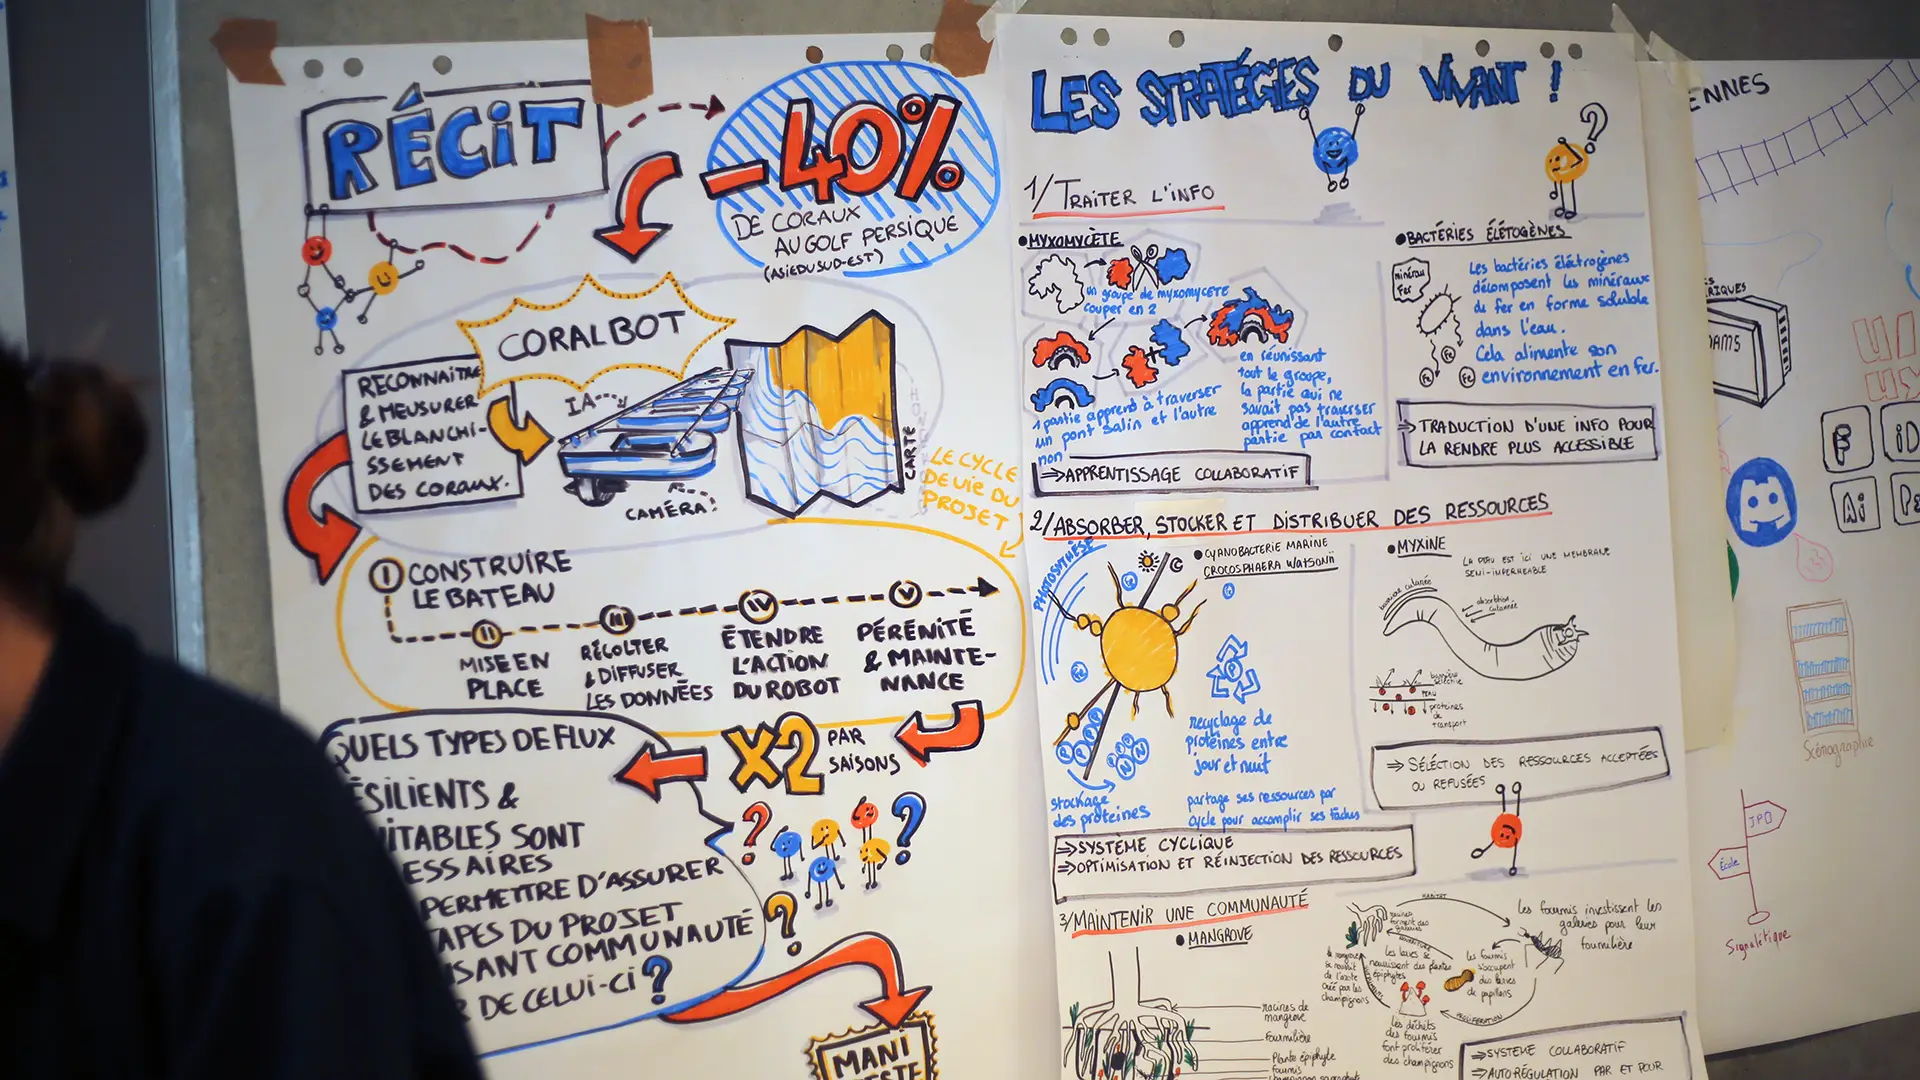 RÉCIT
-40%
DE CORAUX
AU GOLF PERSIQUE
(ASIE DU SUD-EST)
CORALBOT
RECONNAITRE
& MEUSURER
LE BLANCHI-
SSEMENT
DES CORAUX.
IA
CAMÉRA
CARTE
LE CYCLE
DE VIE DU
PROJET
I CONSTRUIRE
LE BATEAU
II
MISE EN
PLACE
III
RÉCOLTER
& DIFFUSER
LES DONNÉES
IV
ÉTENDRE
L'ACTION
DU ROBOT
V
PÉRÉNITÉ
& MAINTE-
NANCE
X2 PAR
SAISONS
QUELS TYPES DE FLUX
ÉSILIENTS &
ITABLES SONT
ESSAIRES
PERMETTRE D'ASSURER
APES DU PROJET
ISANT COMMUNAUTÉ
R DE CELUI-CI ?
MANI
ESTE
LES STRATÉGIES DU VIVANT !
1/TRAITER L'INFO
MYXOMYCÈTE
un groupe de MYXOMYCETE
couper en 2
1 partie apprend à traverser
un pont salin et l'autre
non
en réunissant
tout le groupe,
la partie qui ne
savait pas traverser
apprend de l'autre
partie par contact
⇒APPRENTISSAGE COLLABORATIF
BACTÉRIES ÉLÉTOGÈNES
minérau
Fer
Fe
Fe
Fe
Les bactéries éléctrogènes
décomposent les minéraux
du fer en forme soluble
dans l'eau.
Cela alimente son
environnement en fer.
⇒TRADUCTION D'UNE INFO POUR
LA RENDRE PLUS ACCESSIBLE
2/ABSORBER, STOCKER ET DISTRIBUER DES RESSOURCES
PHOTOSYNTHÈSE
CYANOBACTERIE MARINE
CROCOSPHAERA WATSONII
stockage
des protéines
recyclage de
protéines entre
jour et nuit
partage ses ressources par
cycle pour accomplir ses tâches
⇒SYSTÈME CYCLIQUE
⇒OPTIMISATION ET RÉINJECTION DES RESSOURCES
MYXINE
LA PEAU EST ICI UNE MEMBRANE
SEMI-IMPERMÉABLE
absorbtion
cutannée
PEAU
protéines
de
transport
⇒ SÉLÉCTION DES RESSOURCES ACCEPTÉES
OU REFUSÉES
3/MAINTENIR UNE COMMUNAUTÉ
MANGROVE
racines de
mangrove
fourmilière
Plante épiphyte
fourmis
HABITAT
Les fourmis investissent les
galeries pour leur
fourmilière
les fourmis
s'occupent
des larves
de papillons
PROLIFÉRATION
Les déchets
des fourmis
font proliférer
des champignons
⇒SYSTEME COLLABORATIF
⇒AUTORÉGULATION PAR ET POUR
ENNES
RIQUES
AMS
Ai
Scénographie
JPO
École
Signalétique